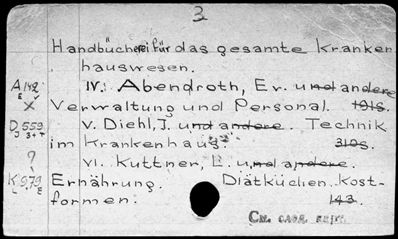 3
Handbücherei für das gesamte Kranken
hauswesen.
A 142 IV. Abendroth, Er. und andere
Verwaltung und Personal. 191S.
D 559 V. Diehl, J. und andere. Technik
im Krankenhaus. 310S.
?
VI. Kuttner, L. und andere.
K 979 Ernährung. Diätküchen. Kost-
formen. 143.